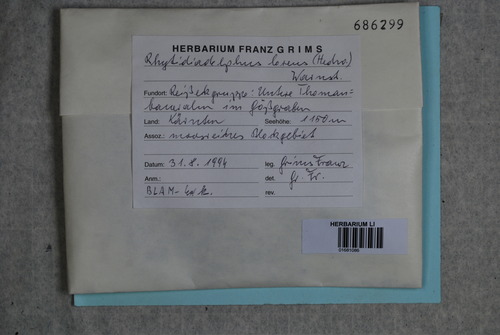 686299
HERBARIUM FRANZ GRIMS
Rhytidiadelphus loreus (Hedw.)
Warnst.
Fundort: Reißeckgruppe: Untere Thoman=
baueralm im Gößgraben
Land: Kärnten Seehöhe: 1150m
Assoz.: moosreiches Blockgebiet
Datum: 31.8.1994 leg. Grims Franz
Anm.: det. Gr. Fr.
BLAM-Exk. rev.
HERBARIUM LI